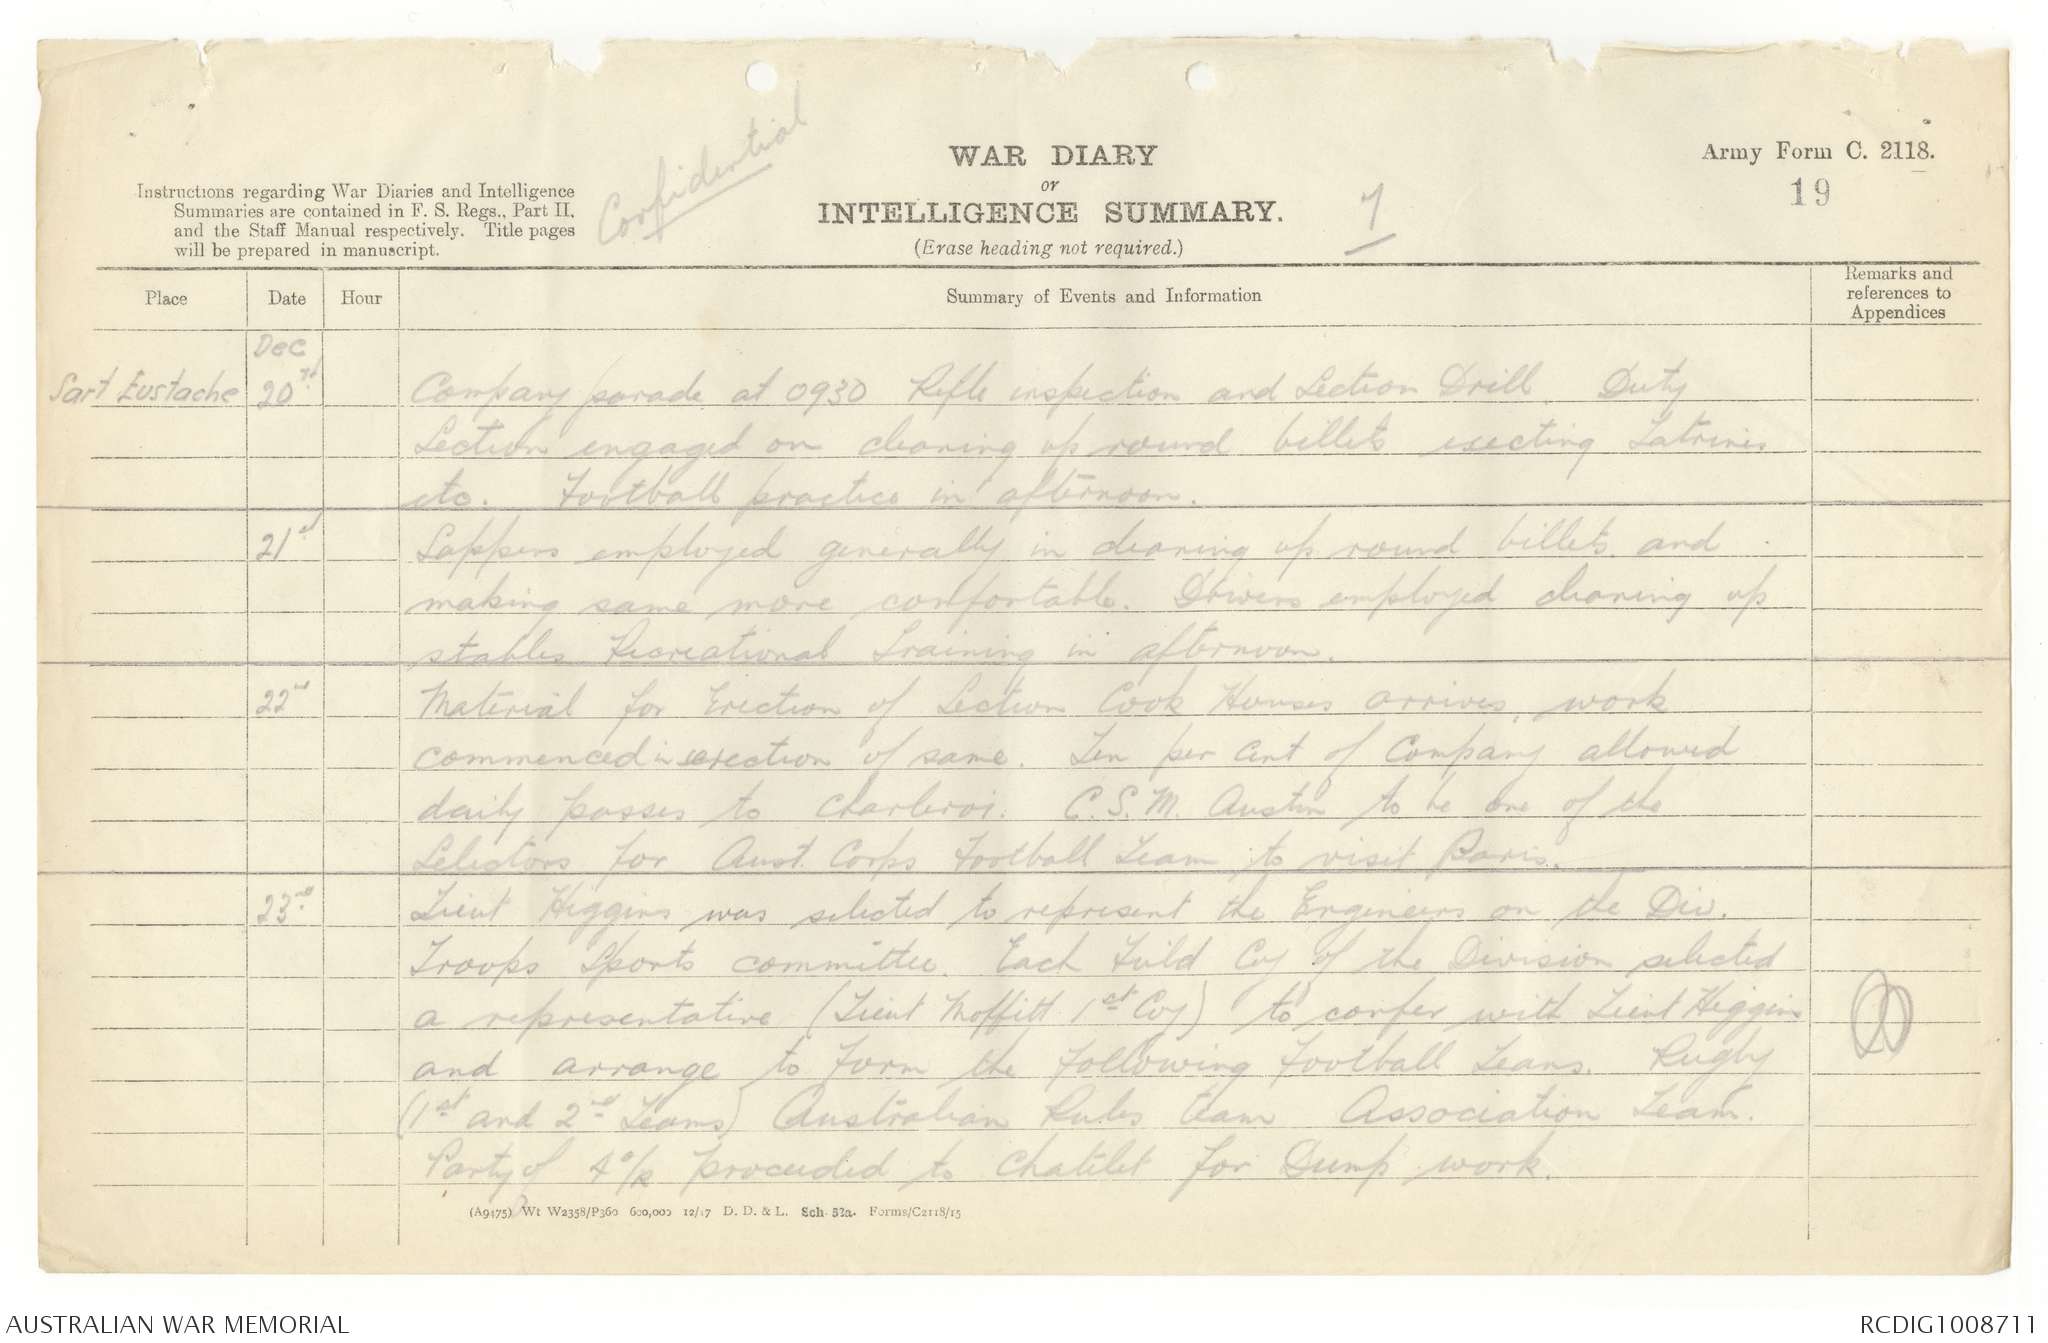 Confidential
WAR DIARY
or
INTELLIGENCE SUMMARY.
(Erase heading not required.)
7
Army Form C. 2118.
19
Instructions regarding War Diaries and Intelligence
Summaries are contained in F. S. Regs., Part II,
and the Staff Manual respectively. Title pages
will be prepared in manuscript.
Place Date Hour Summary of Events and Information Remarks and references to Appendices
Dec
Sart Eustache 20th Company parade at 0930 Rifle inspection and Section Drill. Duty
Section engaged on cleaning up round billets erecting Latrines
etc. Football practice in afternoon.
21st Sappers employed generally in cleaning up round billets and
making same more comfortable. Drivers employed cleaning up
stables Recreational Training in afternoon.
22nd Material for Erection of Section Cook Houses arrives, work
commenced in erection of same. Ten per cent of Company allowed
daily passes to Charleroi. C.S.M. Austin to be one of the
Selectors for Aust. Corps Football Team to visit Paris.
23rd Lieut Higgins was selected to represent the Engineers on the Div.
Troops Sports committee. Each Field Coy of the Division selected
a representative (Lieut Moffitt 1st Coy) to confer with Lieut Higgins
and arrange to form the following Football Teams. Rugby
(1st and 2nd Teams) Australian Rules team Association Team.
Party of 4 o/r proceeded to Chatelet for Dump work.
(A9475) Wt W2358/P360 600,000 12/17 D. D. & L. Sch. 52a. Forms/C2118/15
AUSTRALIAN WAR MEMORIAL
RCDIG1008711